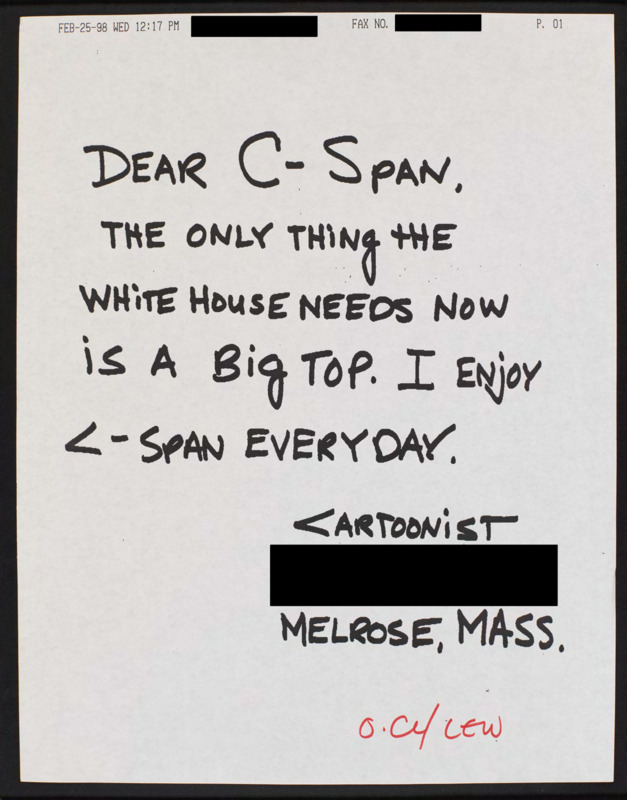 FEB-25-98 WED 12:17 PM FAX NO. P. 01
DEAR C-SPAN,
THE ONLY THiNg THE
WHiTE HOUSE NEEDS NOW
iS A Big TOP. I ENjOY
C-SPAN EVERYDAY.
CARTOONiST
MELROSE, MASS.
LEW